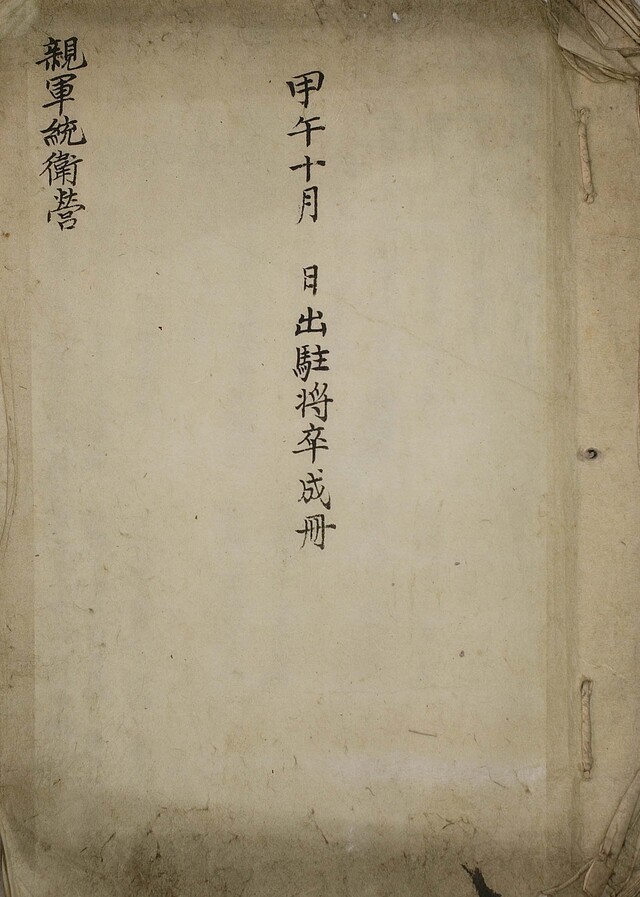 甲午十月 日出駐將卒成冊
親軍統衛營